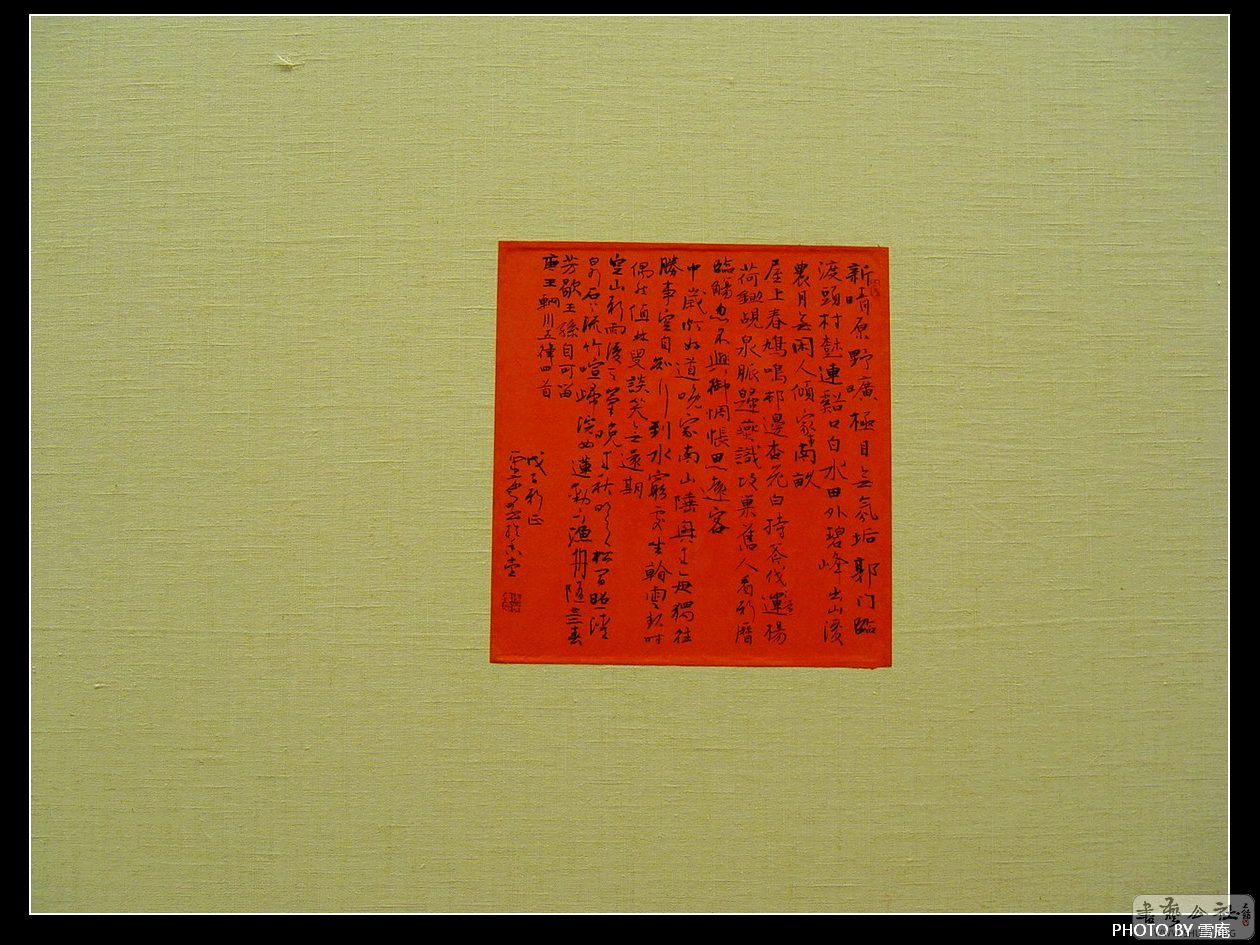 新晴原野曠極目無氛垢郭門臨
渡頭村樹連谿口白水田外碧峰出山後
農月無閑人傾家南畝
屋上春鳩鳴邨邊杏花白持斧伐遠楊
荷鋤覘泉脈歸燕識故巢舊人看新曆
臨觴忽不興御惆悵思遠客
中歲頗好道晚家南山陲興來每獨往
勝事空自知行到水窮處坐看雲起時
偶然值林叟談笑無還期
空山新雨後天氣晚來秋明月松間照清
泉石上流竹喧歸浣女蓮動下漁舟隨意春
芳歇王孫自可留
王輞川五律四首
戊子新正
書藝公社
PHOTO BY 雪庵